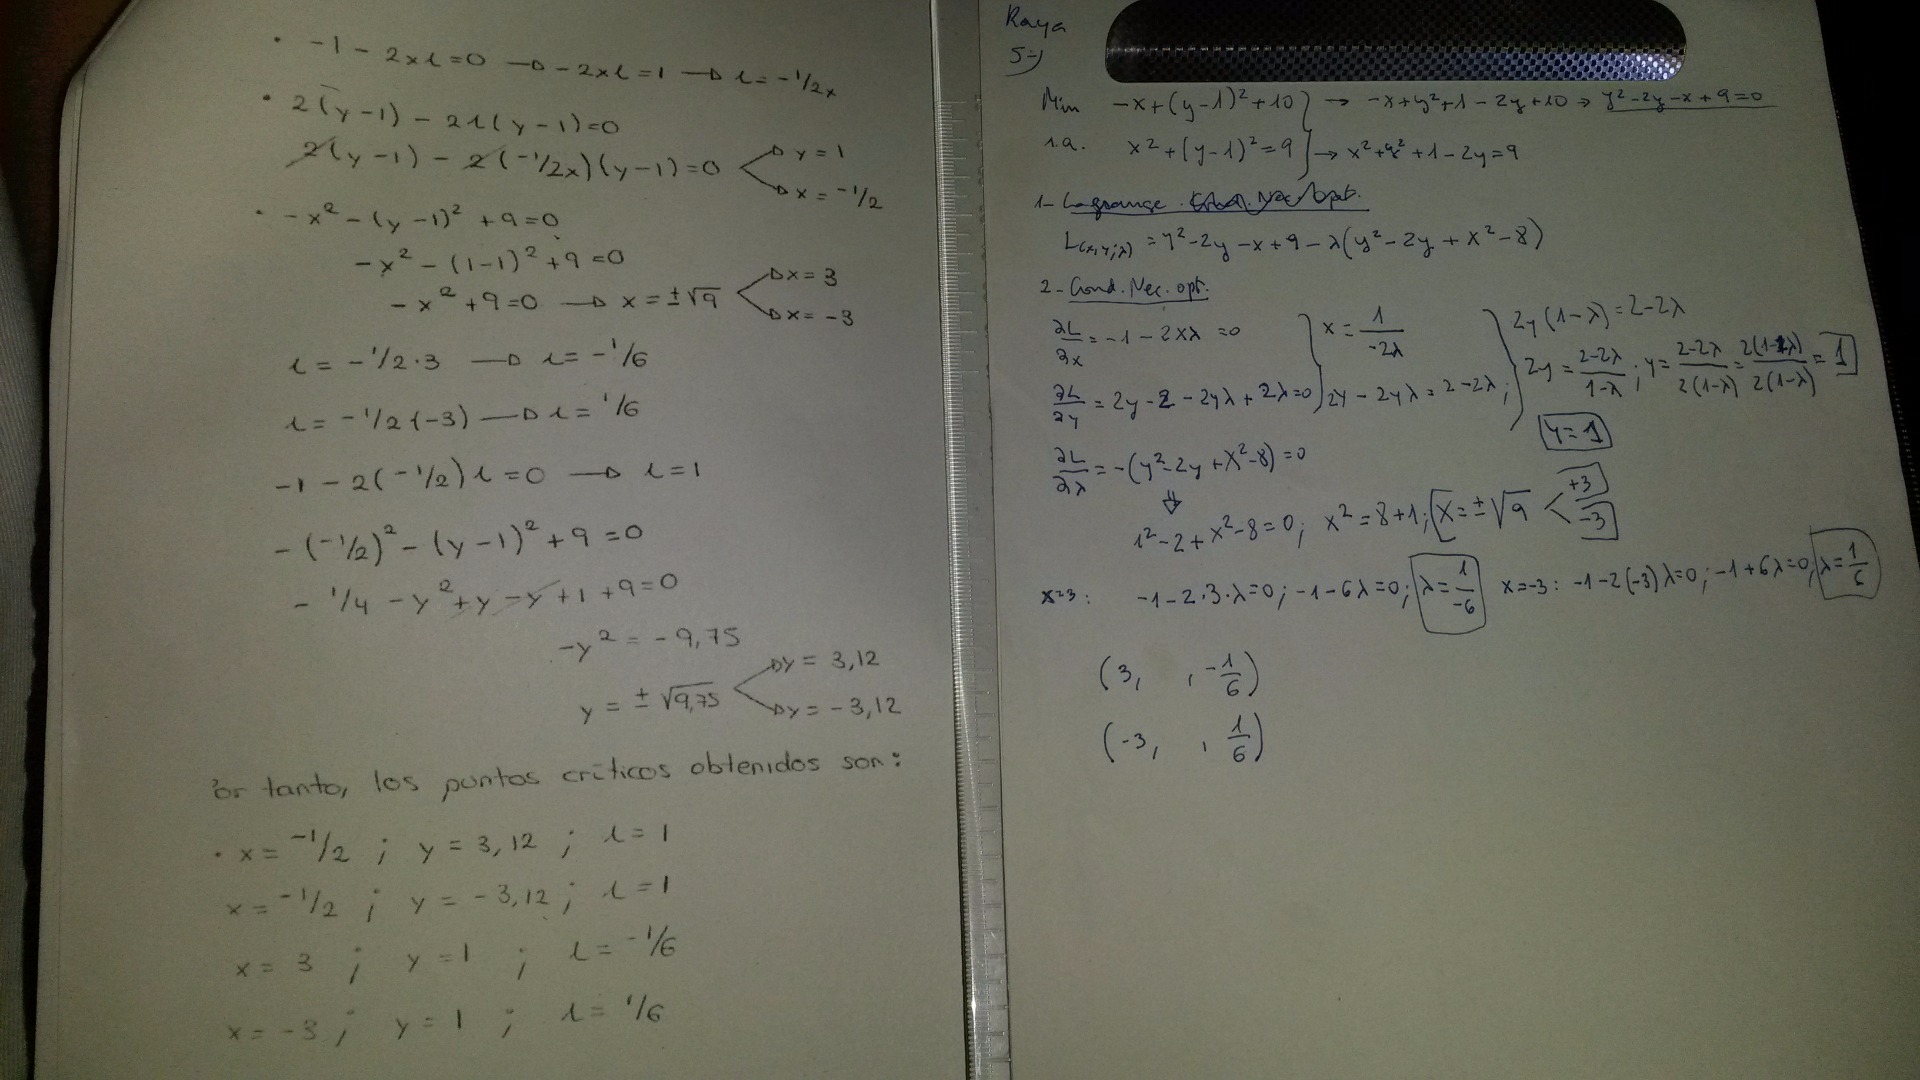 · -1 - 2xλ=0 → -2xλ=1 → λ=-1/2x
· 2(y-1) - 2λ(y-1)=0
2(y-1) - 2(-1/2x)(y-1)=0 → y=1
→ x=-1/2
· -x² - (y-1)² +9=0
-x² - (1-1)² +9=0
-x² +9=0 → x=±√9 → x=3
→ x=-3
λ = -1/2·3 → λ=-1/6
λ = -1/2(-3) → λ=1/6
-1 - 2(-1/2)λ=0 → λ=1
-(-1/2)² - (y-1)² +9=0
- 1/4 - y² + y - y + 1 + 9=0
-y² = -9,75
y = ±√9,75 → y = 3,12
→ y = -3,12
or tanto, los puntos críticos obtenidos son:
· x=-1/2 ; y=3,12 ; λ=1
x=-1/2 ; y=-3,12 ; λ=1
x=3 ; y=1 ; λ=-1/6
x=-3 ; y=1 ; λ=1/6
Raya
5-)
Min -x+(y-1)²+10 } → -x+y²+1-2y+10 → y²-2y-x+9=0
s.a. x²+(y-1)²=9 } → x²+y²+1-2y=9
1- Lagrange. Nec. Opt.
L(x,y;λ) = y²-2y-x+9-λ(y²-2y+x²-8)
2- Cond. Nec. opt.
∂L/∂x = -1-2xλ=0 } x = 1/-2λ } 2y(1-λ)=2-2λ
∂L/∂y = 2y-2-2yλ+2λ=0 } 2y-2yλ=2-2λ; } 2y = 2-2λ/1-λ ; y = 2-2λ/2(1-λ) = 2(1-λ)/2(1-λ) = 1
y=1
∂L/∂λ = -(y²-2y+x²-8)=0
⇓
1²-2+x²-8=0; x²=8+1; x=±√9 < +3
-3
x=3: -1-2·3·λ=0; -1-6λ=0; λ=1/-6 x=-3: -1-2(-3)λ=0; -1+6λ=0; λ=1/6
(3, , -1/6)
(-3, , 1/6)